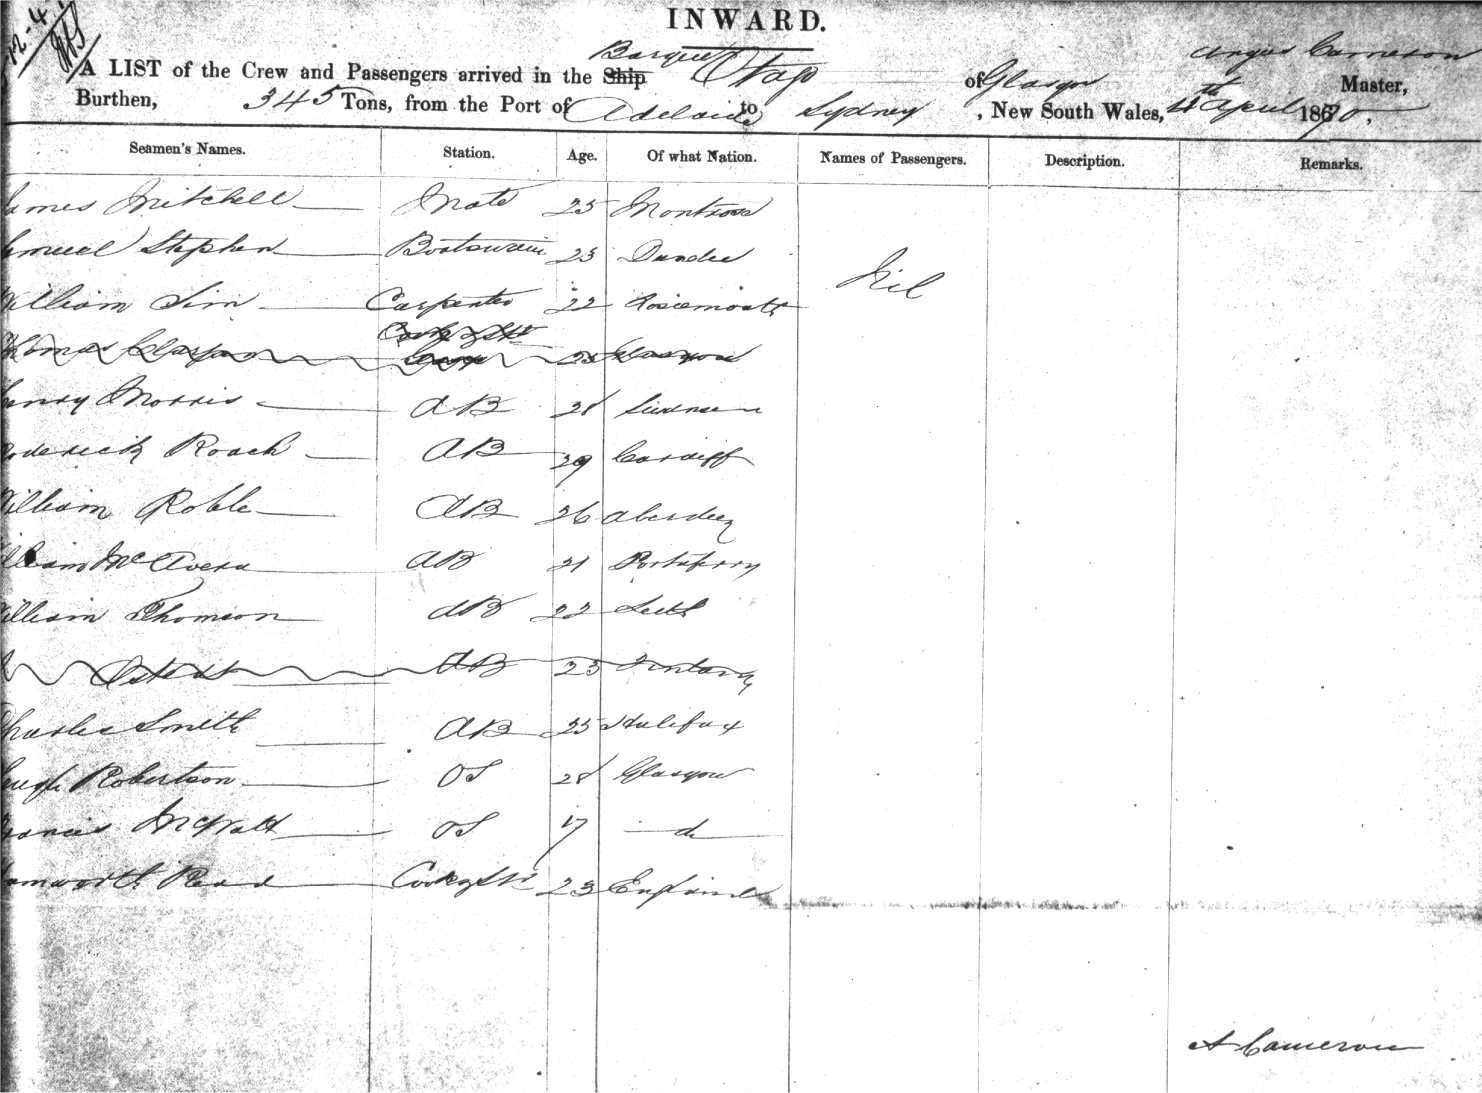 INWARD.
A LIST of the Crew and Passengers arrived in the Ship Barque Otago of Glasgow Angus Cameron Master,
Burthen, 345 Tons, from the Port of Adelaide to Sydney, New South Wales, 4th April 1870,
Seamen's Names. Station. Age. Of what Nation. Names of Passengers. Description. Remarks.
James Mitchell Mate 25 Montrose
Samuel Stephen Boatswain 23 Dundee
Nil
William Sim Carpenter 22
Thomas Cook & Std 25 Glasgow
Henry Morris AB 28
Roderick Roach AB 29 Cardiff
William Roble AB 26 Aberdeen
William Mc AB 21 Portaferry
William Thomson AB 22 Leith
AB 23
Charles Smith AB 25 Halifax
Hugh Robertson OS 28 Glasgow
Francis McWatt OS 17 do
Read Cook & Std 23 England
A Cameron